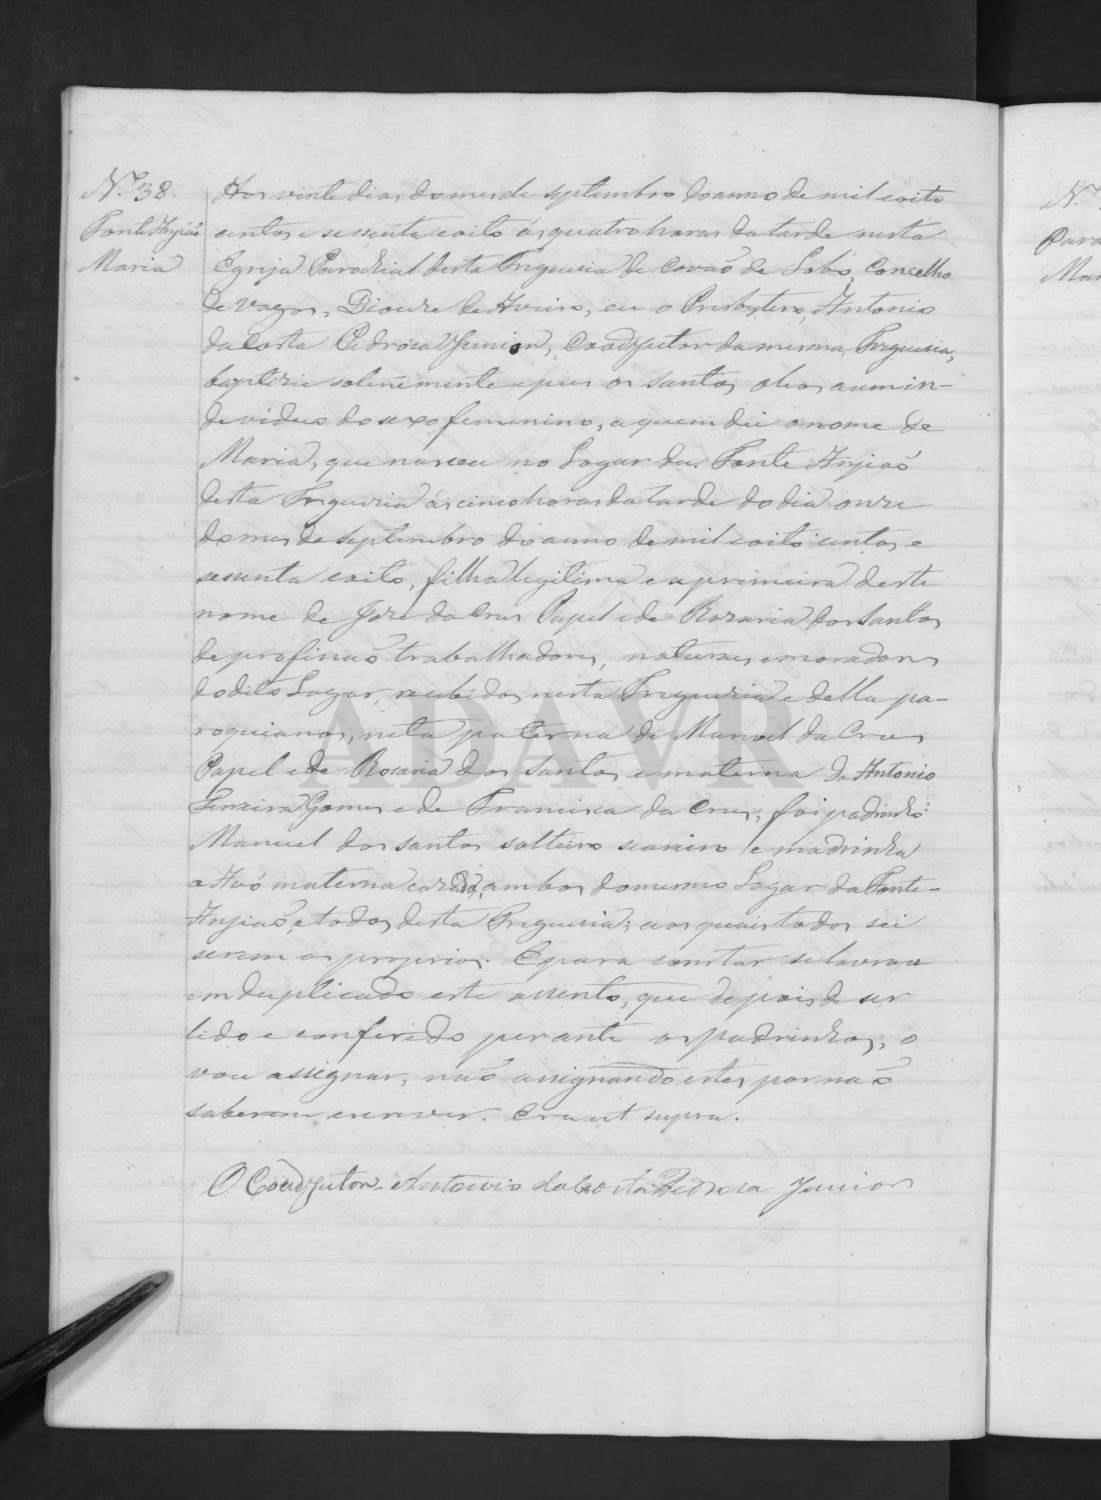 Nº 38.
Fonte Anjiaõ
Maria
Aos vinte dias do mes de Septembro do anno de mil e oito
centos e sessenta e oito ás quatro horas da tarde nesta
Egreja Parochial desta Freguesia de Covaõ de Lobo, Concelho
de Vagos, Diocese de Aveiro, eu o Presbytero, Antonio
da Costa Pedrosa Junior, Coadjutor da mesma Freguesia,
baptizei solenemente e pus os santos oleos a um in-
deviduo do sexo femenino, a quem dei o nome de
Maria, que nasceu no Logar da Fonte Anjiaõ
desta Freguesia ás cinco horas da tarde do dia onze
do mes de Septembro do anno de mil e oito centos e
sessenta e oito, filha legitima e a primeira deste
nome de Jozé da Crus Papel e de Rozaria dos Santos
de profissaõ trabalhadores, naturaes e moradores
do dito Logar, recebidos nesta Freguesia e della pa-
roquianos, neta paterna de Manoel da Crus
Papel e de Rosaria dos Santos e materna de Antonio
Ferreira Gomes e de Francisca da Crus; foi padrinho
Manuel dos Santos solteiro e madrinha
a Avó materna cazada, ambos do mesmo Logar da Fonte-
Anjiaõ, e todos desta Freguesia; e os quais todos sei
serem os proprios. E para constar se lavrou
em duplicado este assento, que depois de ser
lido e conferido perante os padrinhos, o
vou assignar, naõ assignando estes por naõ
saberem escrever. Era ut supra.
O Coadjutor Antonio da Costa Pedrosa Junior
ADAVR
Nº
Para
Mar